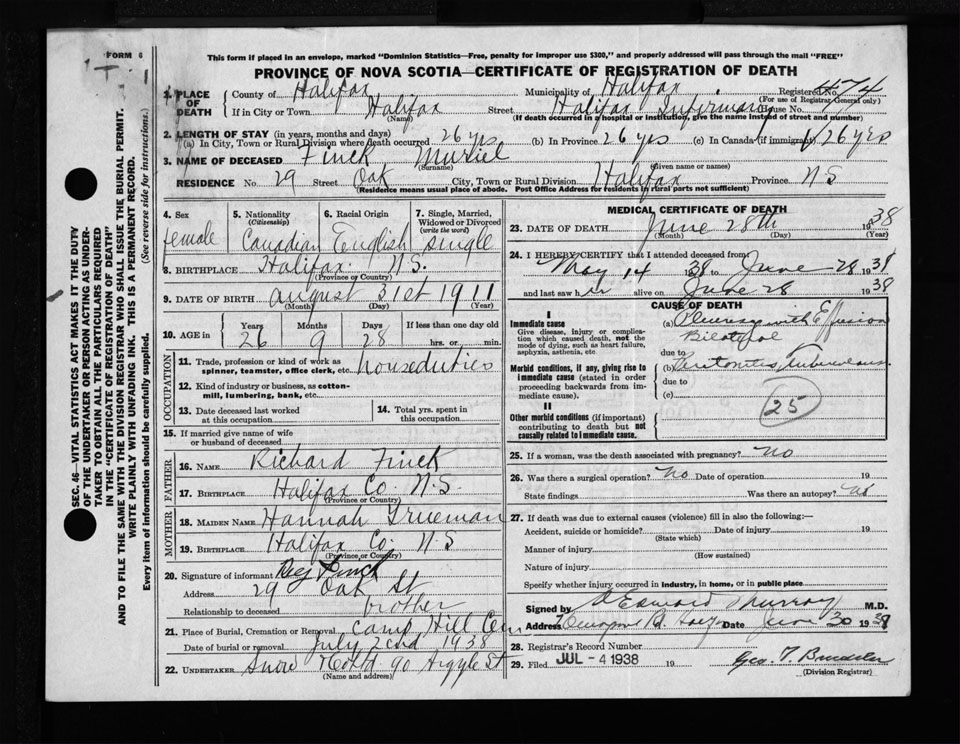 FORM 6
This form if placed in an envelope, marked "Dominion Statistics—Free, penalty for improper use $300," and properly addressed will pass through the mail "FREE"
PROVINCE OF NOVA SCOTIA—CERTIFICATE OF REGISTRATION OF DEATH
SEC. 46 – VITAL STATISTICS ACT MAKES IT THE DUTY
OF THE UNDERTAKER OR PERSON ACTING AS UNDER-
TAKER TO OBTAIN ALL THE PARTICULARS REQUIRED
IN THE "CERTIFICATE OF REGISTRATION OF DEATH"
AND TO FILE THE SAME WITH THE DIVISION REGISTRAR WHO SHALL ISSUE THE BURIAL PERMIT.
WRITE PLAINLY WITH UNFADING INK. THIS IS A PERMANENT RECORD.
Every item of information should be carefully supplied. (See reverse side for instructions.)
1. PLACE OF DEATH County of Halifax Municipality of Halifax Registered No. 474
(For use of Registrar General only)
If in City or Town Halifax Street Halifax Infirmary House No.
(Name) (If death occurred in a hospital or institution, give the name instead of street and number)
2. LENGTH OF STAY (in years, months and days)
(a) In City, Town or Rural Division where death occurred 26 yrs (b) In Province 26 yrs (c) In Canada (if immigrant) 26 yrs
3. NAME OF DECEASED Finck Muriel
(Surname) (Given name or names)
RESIDENCE No. 29 Street Oak City, Town or Rural Division Halifax Province N S
(Residence means usual place of abode. Post Office Address for residents in rural parts not sufficient)
4. Sex female
5. Nationality (Citizenship) Canadian
6. Racial Origin English
7. Single, Married, Widowed or Divorced (write the word) single
8. BIRTHPLACE Halifax N.S.
(Province or Country)
9. DATE OF BIRTH august 31st 1911
(Month) (Day) (Year)
10. AGE in Years 26 Months 9 Days 28 If less than one day old
hrs. or min.
OCCUPATION
11. Trade, profession or kind of work as spinner, teamster, office clerk, etc. houseduties
12. Kind of industry or business, as cotton-mill, lumbering, bank, etc.
13. Date deceased last worked at this occupation
14. Total yrs. spent in this occupation
15. If married give name of wife or husband of deceased
FATHER
16. NAME Richard Finck
17. BIRTHPLACE Halifax Co. N.S.
(Province or Country)
MOTHER
18. MAIDEN NAME Hannah Trueman
19. BIRTHPLACE Halifax Co. N.S
(Province or Country)
20. Signature of informant Reg Finck
Address 29 Oak St
Relationship to deceased brother
21. Place of Burial, Cremation or Removal Camp Hill Cem
Date of burial or removal July 2nd 1938
22. UNDERTAKER Snow 90 Argyle St
(Name and address)
MEDICAL CERTIFICATE OF DEATH
23. DATE OF DEATH June 28th 1938
(Month) (Day) (Year)
24. I HEREBY CERTIFY that I attended deceased from:
May 14 1938 to June 28 1938
and last saw h er alive on June 28 1938
CAUSE OF DEATH
I
Immediate cause
Give disease, injury or complication which caused death, not the mode of dying, such as heart failure, asphyxia, asthenia, etc.
(a) Pleurisy with Effusion
Bilateral
due to
Morbid conditions, if any, giving rise to immediate cause (stated in order proceeding backwards from immediate cause).
(b) Peritonitis, Tuberculous
due to
(c)
25
II
Other morbid conditions (if important) contributing to death but not causally related to immediate cause.
25. If a woman, was the death associated with pregnancy? no
26. Was there a surgical operation? No Date of operation 19
State findings Was there an autopsy? no
27. If death was due to external causes (violence) fill in also the following:—
Accident, suicide or homicide? Date of injury 19
(State which)
Manner of injury
(How sustained)
Nature of injury
Specify whether injury occurred in industry, in home, or in public place
Signed by Edward Murray M.D.
Address Date June 30 1938
28. Registrar's Record Number
29. Filed JUL - 4 1938 19
(Division Registrar)